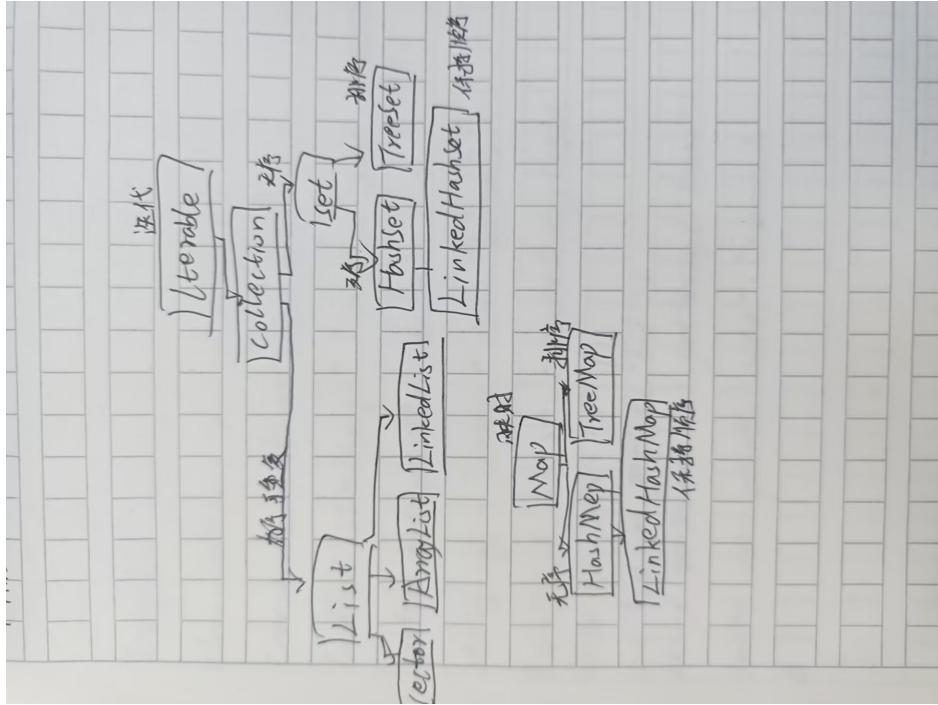 迭代
Iterable
Collection
有序可重复
无序
List
Set
Vector
ArrayList
LinkedList
无序
HashSet
排序
TreeSet
LinkedHashSet
保持顺序
映射
Map
无序
HashMep
排序
TreeMap
LinkedHashMap
保持顺序